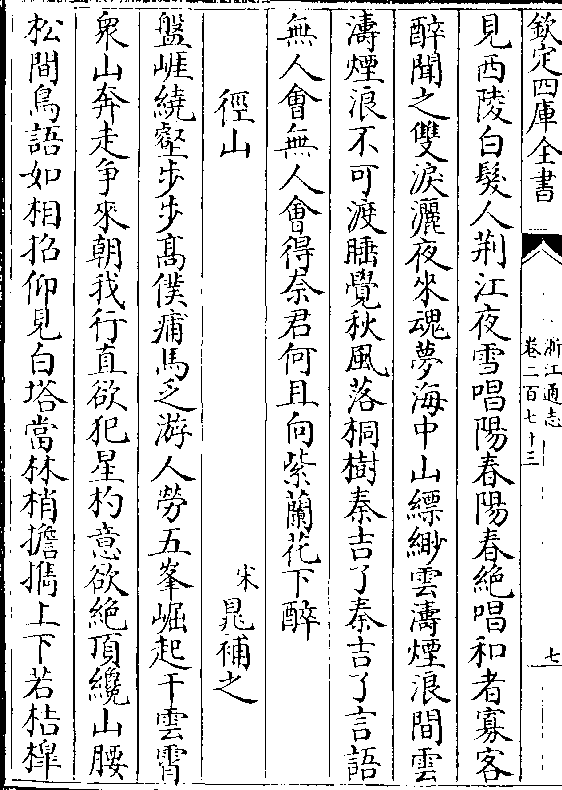 欽定四庫全書
浙江通志
卷二百七十三
七
見西陵白髮人荆江夜雪唱陽春陽春絶唱和者寡客
醉聞之雙淚灑夜來魂夢海中山縹緲雲濤煙浪間雲
濤煙浪不可渡睡覺秋風落桐樹秦吉了秦吉了言語
無人會無人會得奈君何且向紫蘭花下醉
徑山
宋晁補之
盤崕繞壑步步髙僕痡馬乏游人勞五峯崛起干雲霄
衆山奔走争來朝我行直欲犯星杓意欲絶頂纔山腰
松間鳥語如相招仰見白塔當林梢擔攜上下若桔槹